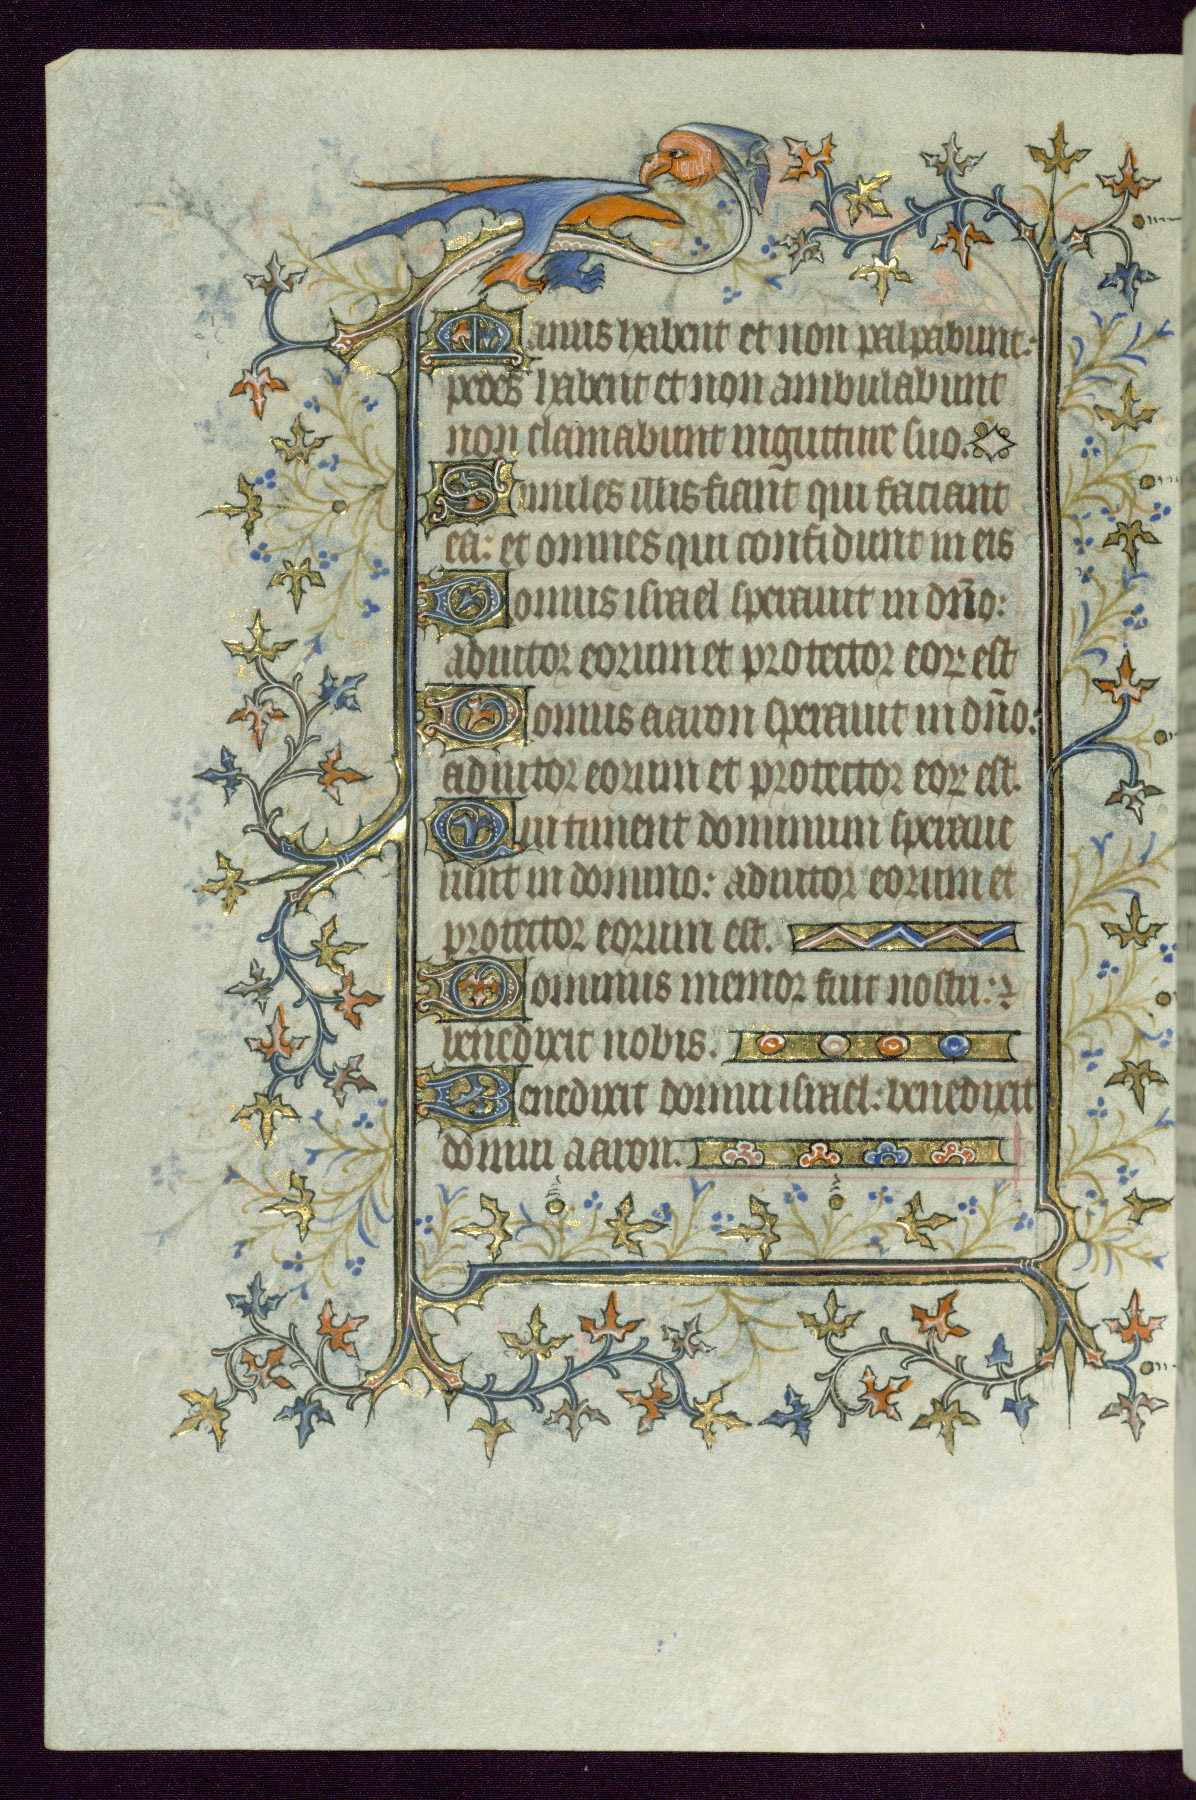 Manus habent et non palpabunt:
pedes habent et non ambulabunt
non clamabunt in gutture suo.
Similes illis fiant qui faciant
ea: et omnes qui confidunt in eis
Domus israel speravit in dño:
adiutor eorum et protector eoꝝ est
Domus aaron speravit in dño:
adiutor eorum et protector eoꝝ est.
Qui timent dominum sperave
runt in domino: adiutor eorum et
protector eorum est.
Dominus memor fuit nostri: ⁊
benedixit nobis.
Benedixit domui israel: benedixit
domui aaron.